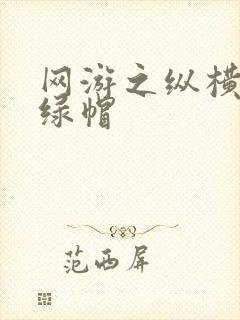 网游之纵横
绿帽
范西屏